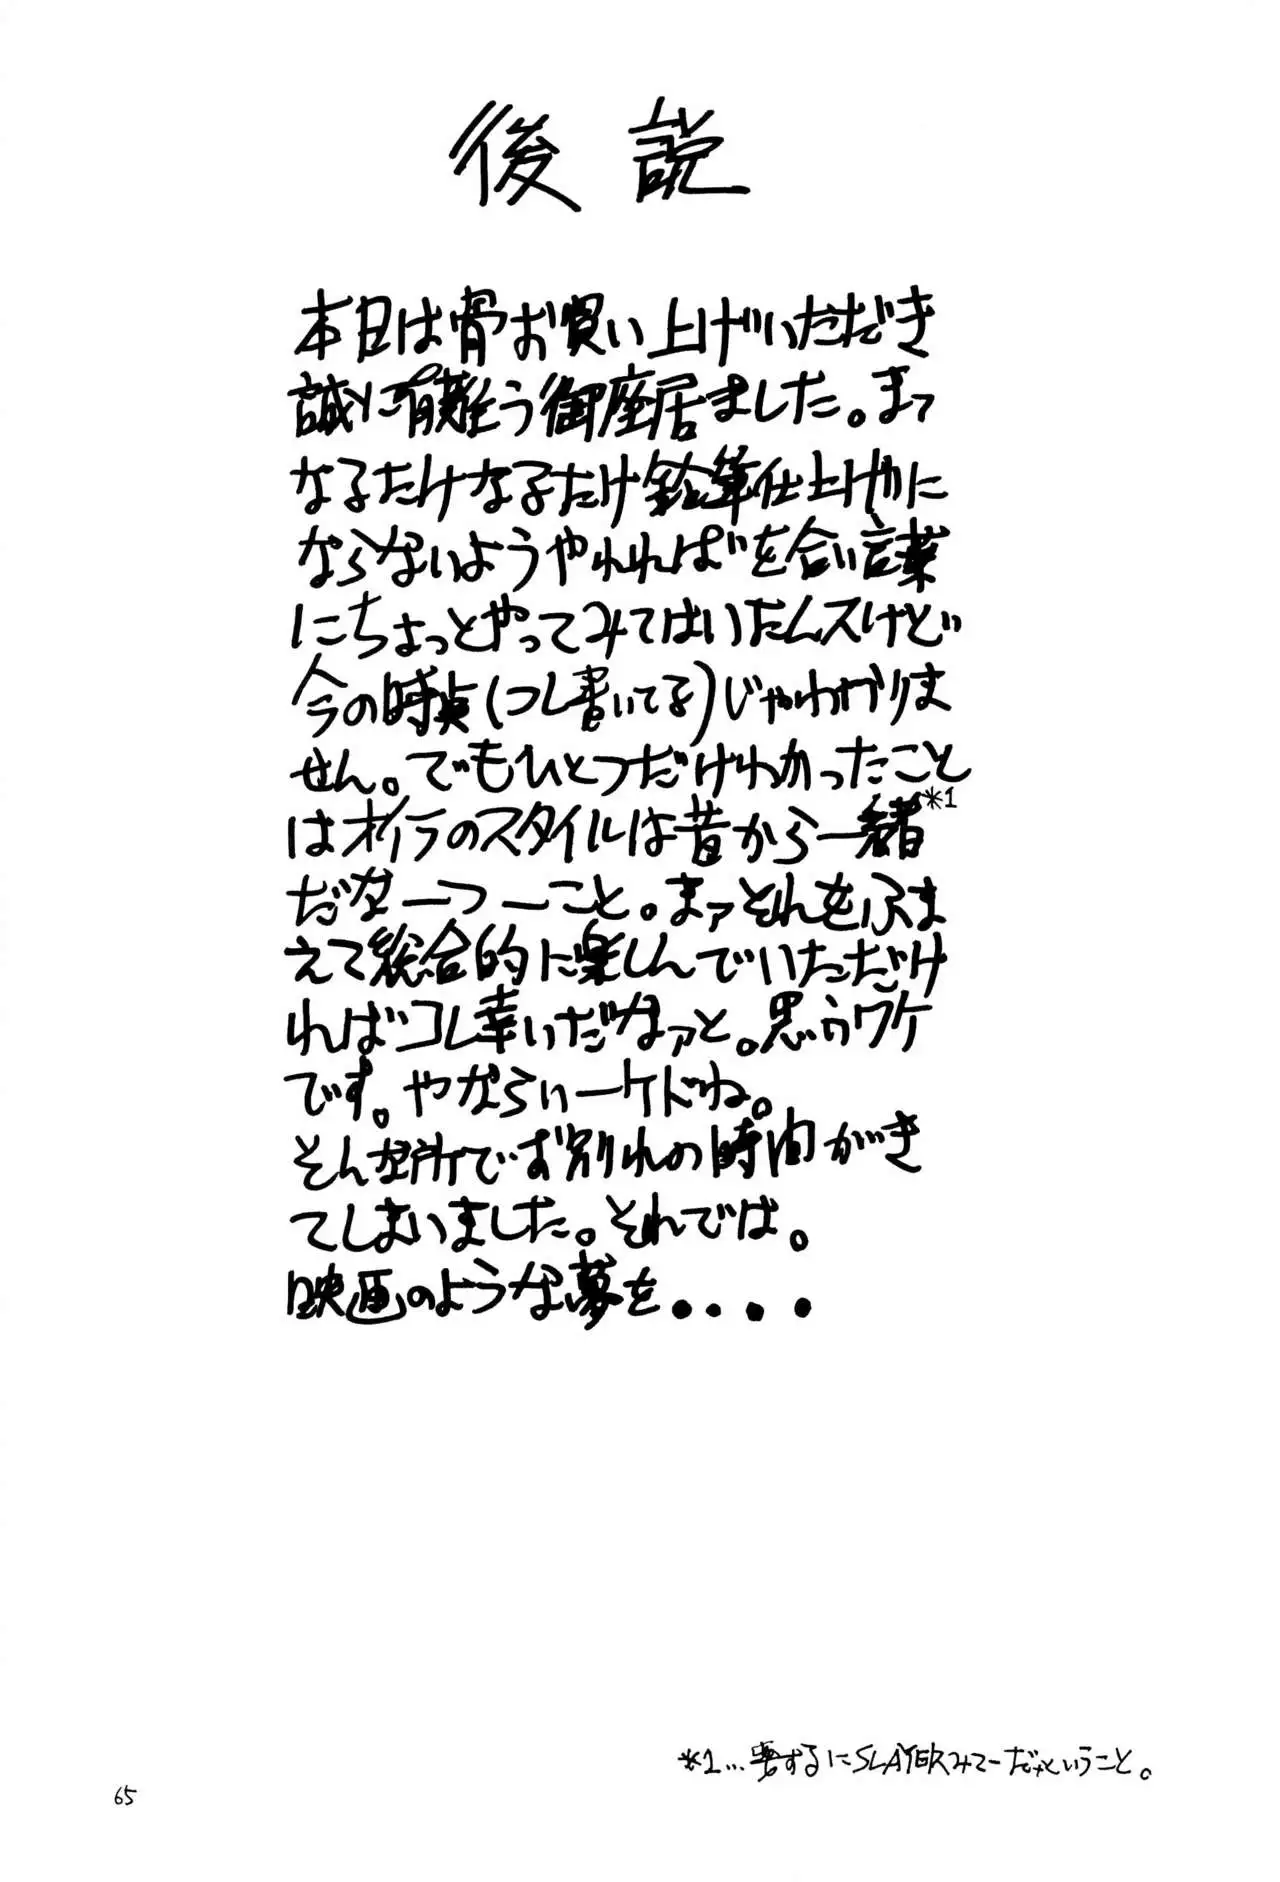 後説
本日は骨お買い上げいただき
誠に有難う御座居ました。まァ
なるたけなるたけ鉛筆仕上げやに
ならないようやれればを合い言葉
にちょっとやってみてはいたんスけど
今の時点(つし書いてる)じゃわかりま
せん。でもひとつだけわかったこと
はオイラのスタイルは昔から一緒*1
だなーつーこと。まァそれをふま
えて総合的に楽しんでいただけ
ればコレ幸いだなァと。思うワケ
です。やならいーケドね。
そんな所でお別れの時間がき
てしまいました。それでは。
映画のような夢を・・・・
*1...要するにSLAYERみてーだなということ。
65